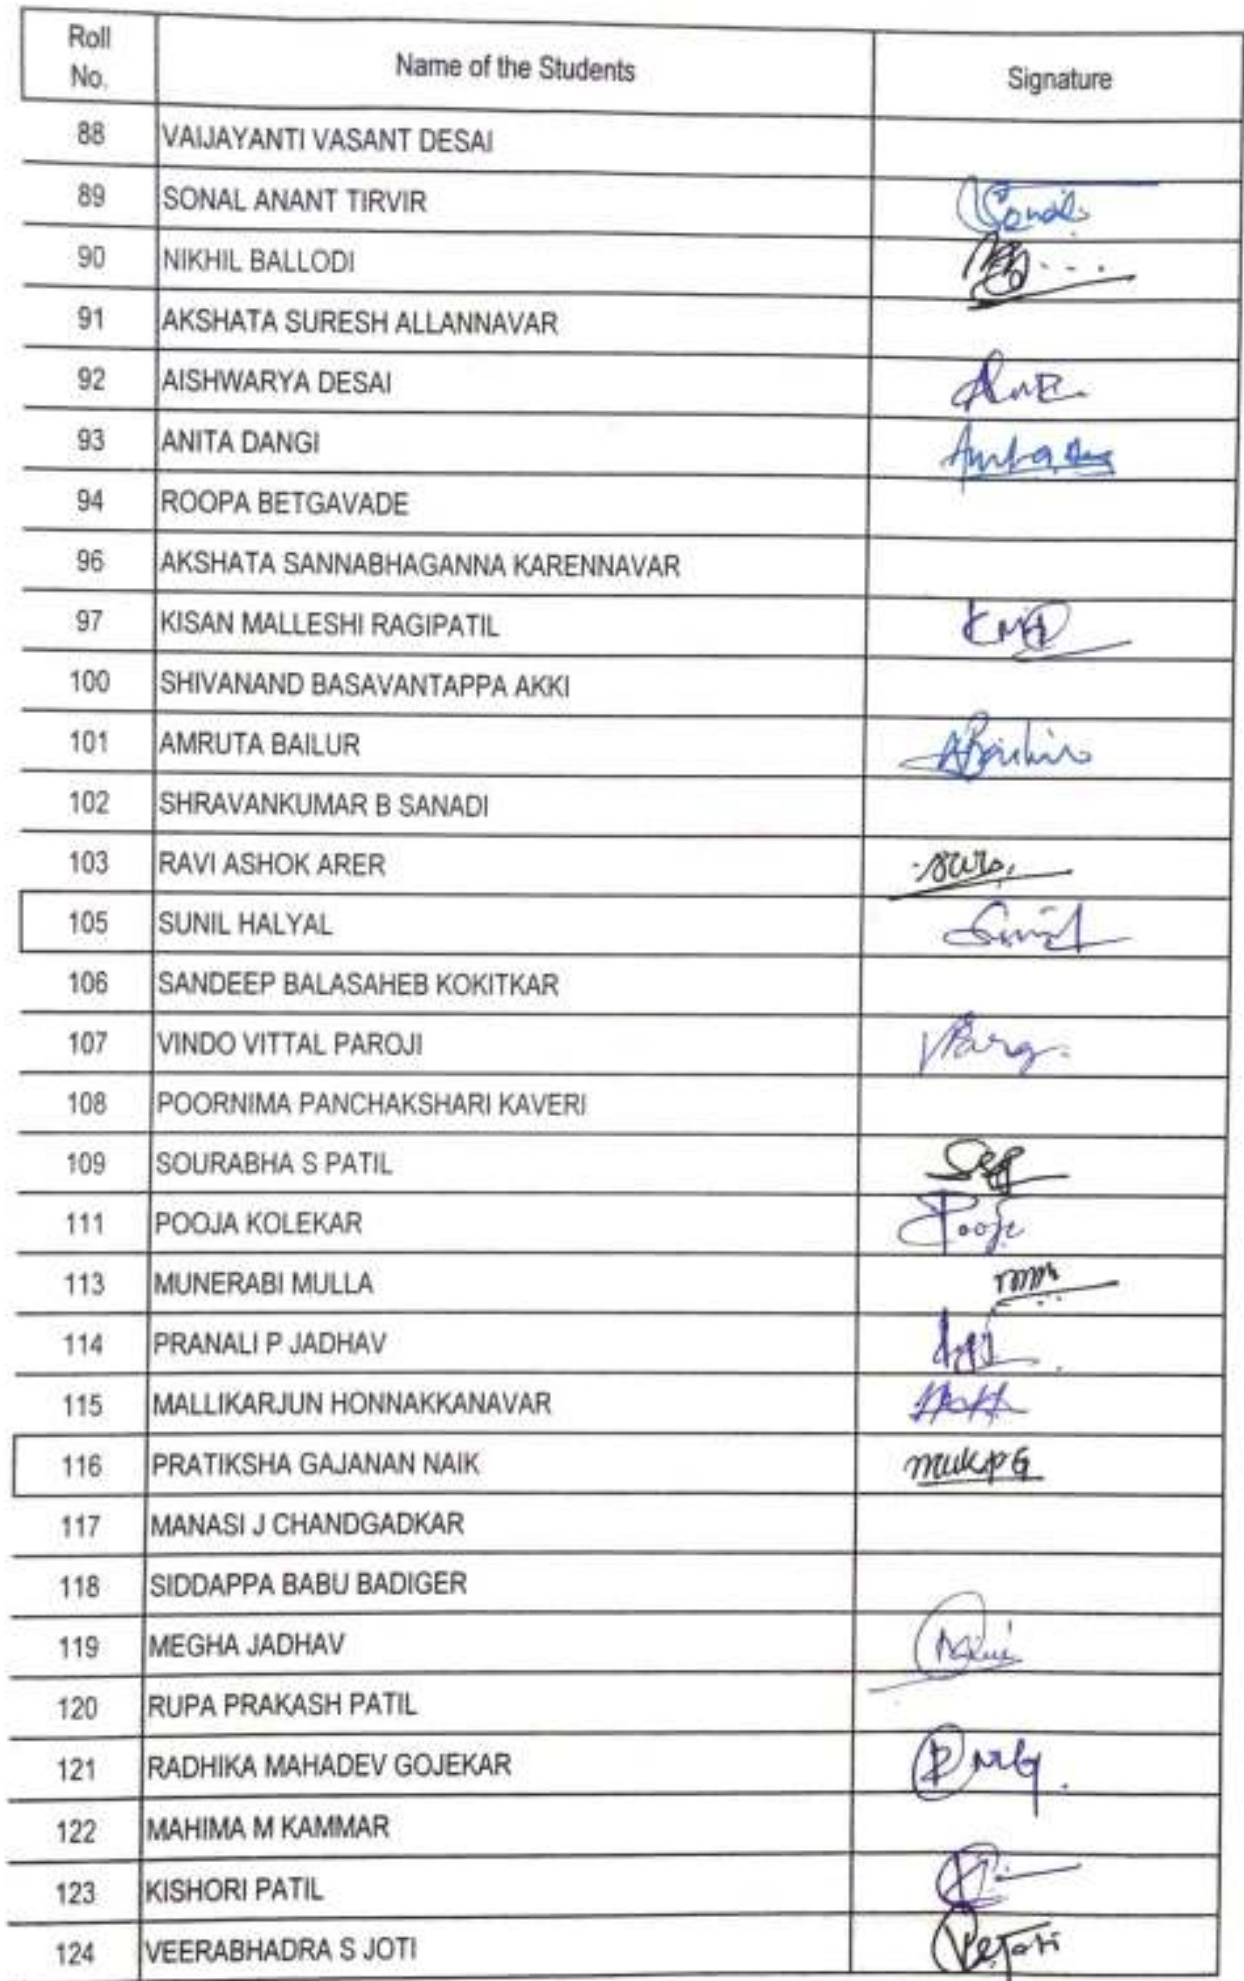 Roll No. Name of the Students Signature
88 VAIJAYANTI VASANT DESAI
89 SONAL ANANT TIRVIR Sonal
90 NIKHIL BALLODI
91 AKSHATA SURESH ALLANNAVAR
92 AISHWARYA DESAI
93 ANITA DANGI
94 ROOPA BETGAVADE
96 AKSHATA SANNABHAGANNA KARENNAVAR
97 KISAN MALLESHI RAGIPATIL
100 SHIVANAND BASAVANTAPPA AKKI
101 AMRUTA BAILUR
102 SHRAVANKUMAR B SANADI
103 RAVI ASHOK ARER
105 SUNIL HALYAL Sunil
106 SANDEEP BALASAHEB KOKITKAR
107 VINDO VITTAL PAROJI
108 POORNIMA PANCHAKSHARI KAVERI
109 SOURABHA S PATIL
111 POOJA KOLEKAR Pooja
113 MUNERABI MULLA
114 PRANALI P JADHAV
115 MALLIKARJUN HONNAKKANAVAR
116 PRATIKSHA GAJANAN NAIK
117 MANASI J CHANDGADKAR
118 SIDDAPPA BABU BADIGER
119 MEGHA JADHAV
120 RUPA PRAKASH PATIL
121 RADHIKA MAHADEV GOJEKAR RMG
122 MAHIMA M KAMMAR
123 KISHORI PATIL
124 VEERABHADRA S JOTI